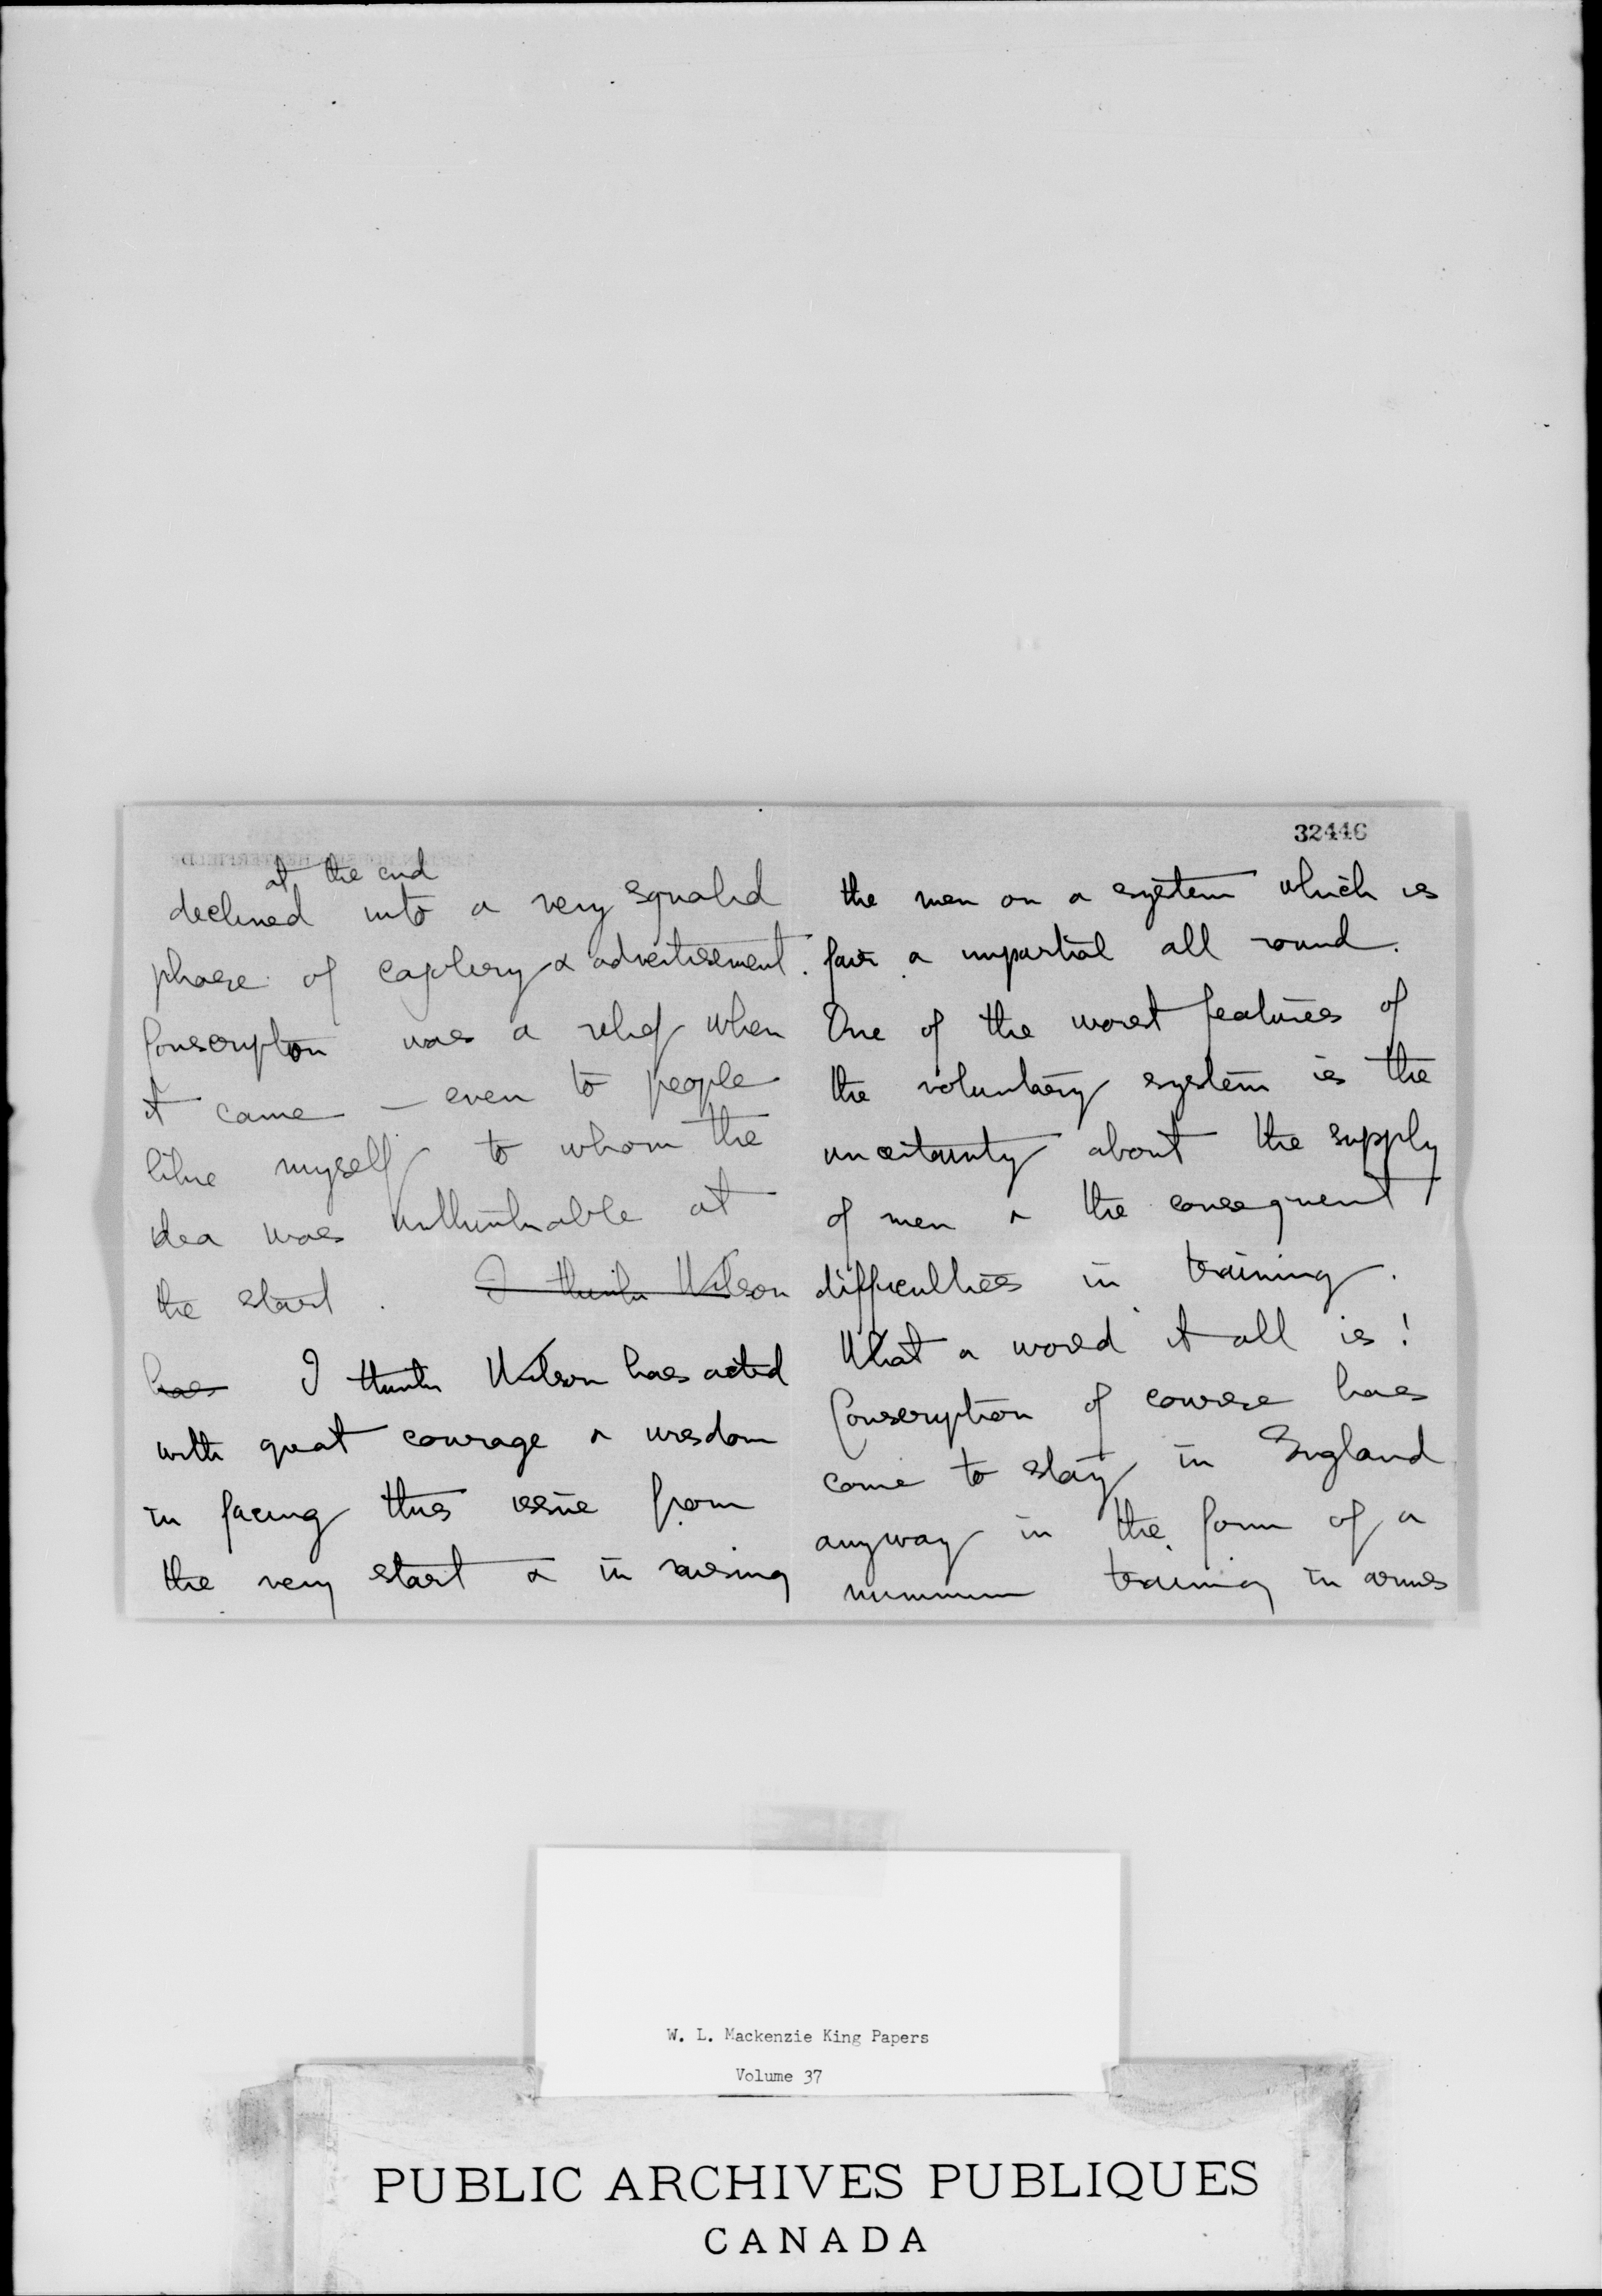 at the end
declined into a very squalid
phase of cajolery & advertisement.
Conscription was a relief when
it came – even to people
like myself to whom the
idea was unthinkable at
the start. I think Wilson
has I think Wilson has acted
with great courage & wisdom
in facing this issue from
the very start & in raising
32446
the men on a system which is
fair & impartial all round.
One of the worst features of
the voluntary system is the
uncertainty about the supply
of men & the consequent
difficulties in training.
What a world it all is!
Conscription of course has
come to stay in England
anyway in the form of a
minimum training in arms
W. L. Mackenzie King Papers
Volume 37
PUBLIC ARCHIVES PUBLIQUES
CANADA